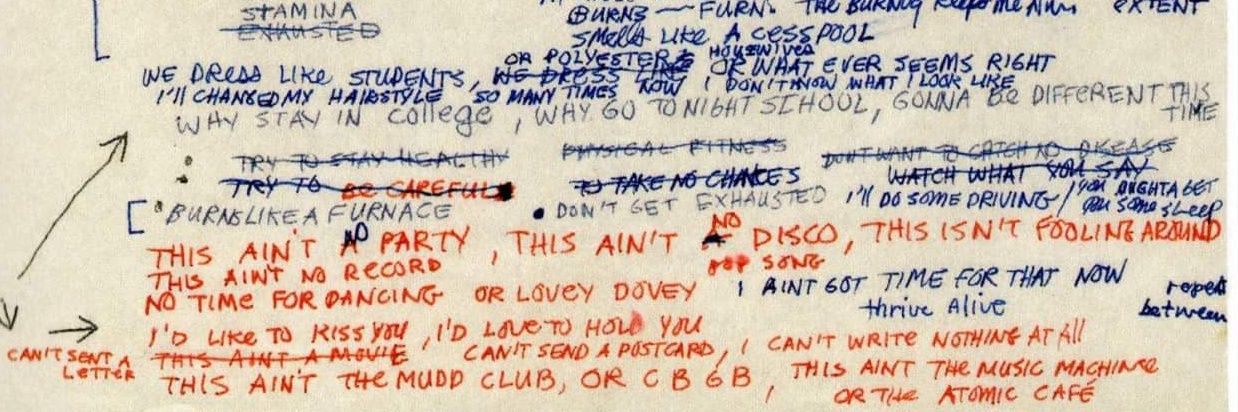 STAMINA
BURNS — FURN. THE BURNING KEEPS ME ALIVE EXTENT
EXHAUSTED
SMELLS LIKE A CESSPOOL
OR POLYESTER HOUSEWIVES
WE DRESS LIKE STUDENTS, WE DRESS LIKE OR WHAT EVER SEEMS RIGHT
I'LL CHANGED MY HAIRSTYLE SO MANY TIMES NOW I DON'T KNOW WHAT I LOOK LIKE
WHY STAY IN College, WHY GO TO NIGHT SCHOOL, GONNA BE DIFFERENT THIS
TIME
TRY TO STAY HEALTHY PHYSICAL FITNESS DON'T WANT TO CATCH NO DISEASE
TRY TO BE CAREFUL TO TAKE NO CHANCES WATCH WHAT YOU SAY
BURNS LIKE A FURNACE • DON'T GET EXHAUSTED I'LL DO SOME DRIVING / YOU OUGHTA GET
YOU SOME SLEEP
THIS AIN'T NO PARTY, THIS AIN'T NO DISCO, THIS ISN'T FOOLING AROUND
THIS AINT NO RECORD POP SONG
NO TIME FOR DANCING OR LOVEY DOVEY I AINT GOT TIME FOR THAT NOW repeat
thrive Alive between
I'D LIKE TO KISS YOU, I'D LOVE TO HOLD YOU
CAN'T SENT A LETTER
THIS AINT A MOVIE CAN'T SEND A POSTCARD, I CAN'T WRITE NOTHING AT All
THIS AIN'T THE MUDD CLUB, OR C B G B, THIS AINT THE MUSIC MACHINE
OR THE ATOMIC CAFÉ